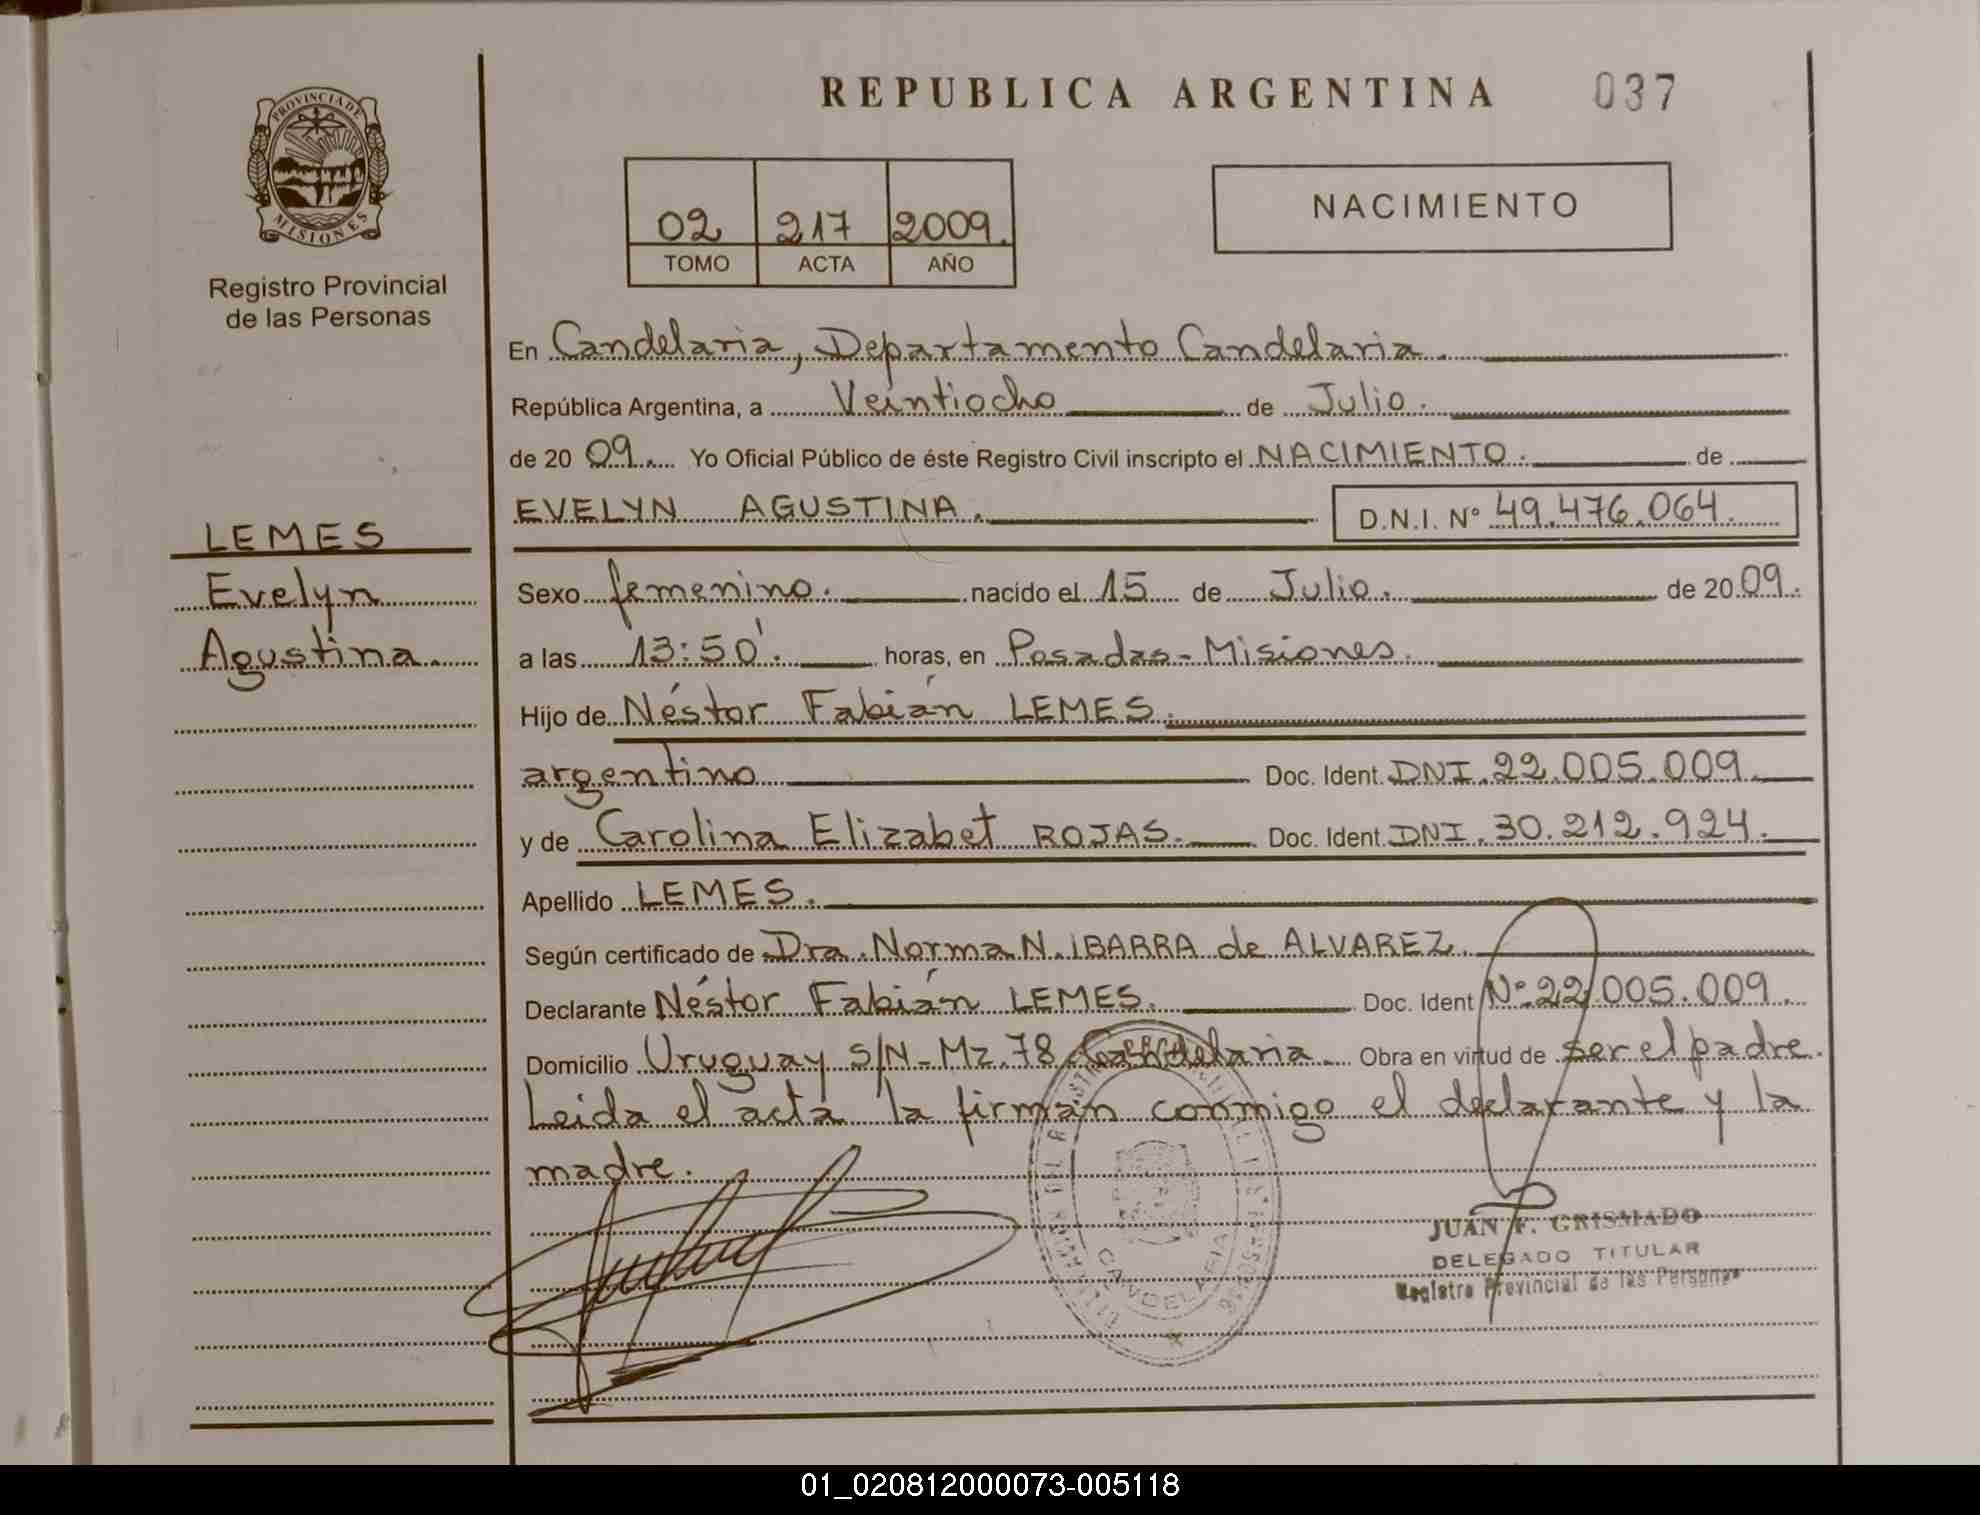 REPUBLICA ARGENTINA 037
PROVINCIA DE
MISIONES
Registro Provincial
de las Personas
02 217 2009.
TOMO ACTA AÑO
NACIMIENTO
En Candelaria, Departamento Candelaria.
República Argentina, a Veintiocho de Julio.
de 20 09. Yo Oficial Público de éste Registro Civil inscripto el NACIMIENTO. de
EVELYN AGUSTINA. D.N.I. Nº 49.476.064.
LEMES
Evelyn
Agustina.
Sexo femenino. nacido el 15 de Julio. de 20 09.
a las 13:50'. horas, en Posadas-Misiones.
Hijo de Néstor Fabián LEMES.
argentino Doc. Ident. DNI. 22.005.009
y de Carolina Elizabet ROJAS. Doc. Ident. DNI. 30.212.924.
Apellido LEMES.
Según certificado de Dra. Norma N. IBARRA de ALVAREZ.
Declarante Néstor Fabián LEMES. Doc. Ident Nº 22.005.009.
Domicilio Uruguay S/N-Mz.78 Candelaria. Obra en virtud de ser el padre.
Leida el acta la firman conmigo el declarante y la
madre.
CANDELARIA
JUAN F. GRISMADO
DELEGADO TITULAR
Registro Provincial de las Personas
01_020812000073-005118